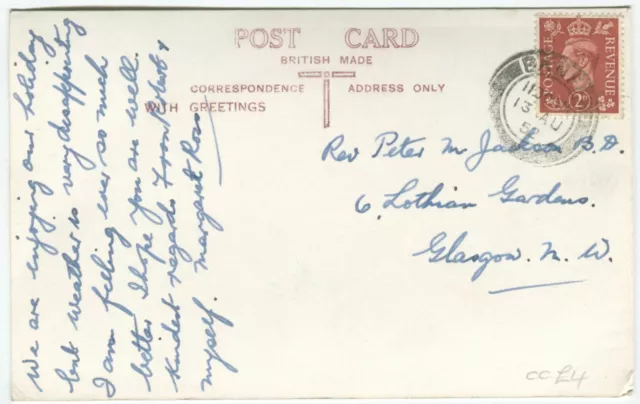 POST CARD
BRITISH MADE
CORRESPONDENCE ADDRESS ONLY
WITH GREETINGS
We are enjoying our holiday
but weather is very disappointing
I am feeling ever so much
better I hope you are well.
Kindest regards from Robert &
myself. Margaret Ross
POSTAGE
REVENUE
2D
13 AU
Rev Peter M Jackson B.D.
6, Lothian Gardens.
Glasgow. N. W.
CC £4